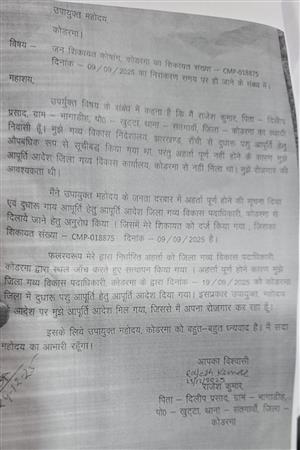 उपायुक्त महोदय,
कोडरमा।
विषय – जन शिकायत कोषांग, कोडरमा का शिकायत संख्या – CMP-018875
दिनांक – 09/09/2025 का निराकरण समय पर हो जाने के संबंध में।
महाशय,
उपर्युक्त विषय के संबंध में कहना है कि मैं राजेश कुमार, पिता – दिलीप
प्रसाद, ग्राम – भागाडीह, पो0 – खुट्टा, थाना – सतगावाँ, जिला – कोडरमा का स्थायी
निवासी हूँ। मुझे गव्य विकास निदेशालय, झारखण्ड, राँची से दुधारू पशु आपूर्ति हेतु
औपबंधिक रूप से सूचीबद्ध किया गया था, परंतु अहर्ता पूर्ण नहीं होने के कारण मुझे
आपूर्ति आदेश जिला गव्य विकास कार्यालय, कोडरमा से नहीं मिला था। मुझे रोजगार की
आवश्यकता थी।
मैंने उपायुक्त महोदय के जनता दरबार में अहर्ता पूर्ण होने की सूचना दिया
एवं दुधारू गाय आपूर्ति हेतु आपूर्ति आदेश जिला गव्य विकास पदाधिकारी, कोडरमा से
दिलाये जाने हेतु अनुरोध किया। जिसमें मेरे शिकायत को दर्ज किया गया, जिसका
शिकायत संख्या – CMP-018875 दिनांक – 09/09/2025 है।
फलस्वरूप मेरे द्वारा निर्धारित अहर्ता को जिला गव्य विकास पदाधिकारी,
कोडरमा द्वारा स्थल जाँच करते हुए सत्यापन किया गया। अहर्ता पूर्ण होने कारण मुझे
जिला गव्य विकास पदाधिकारी, कोडरमा के द्वारा दिनांक – 19/09/2025 को कोडरमा
जिला में दुधारू पशु आपूर्ति हेतु आपूर्ति आदेश दिया गया। इसप्रकार उपायुक्त, महोदय
आदेश पर मुझे आपूर्ति आदेश मिल गया, जिससे मैं अपना रोजगार कर रहा हूँ।
इसके लिये उपायुक्त महोदय, कोडरमा को बहुत-बहुत धन्यवाद है। मैं सदा
महोदय का आभारी रहूँगा।
आपका विश्वासी
Rajesh Kumar
राजेश कुमार,
पिता – दिलीप प्रसाद, ग्राम – भागाडीह,
पो0 – खुट्टा, थाना – सतगावाँ, जिला –
कोडरमा